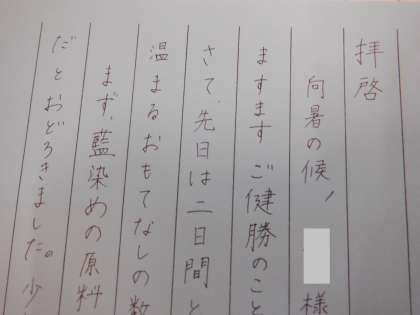 拝啓
向暑の候、
様
ますますご健勝のこと
さて、先日は二日間と
温まるおもてなしの数
まず、藍染めの原料
だとおどろきました。少